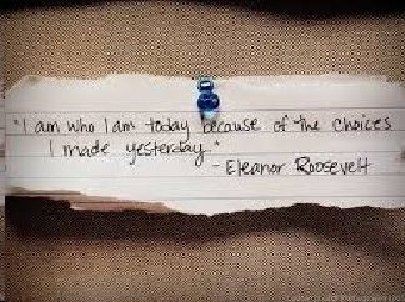 "I am who I am today because of the choices
I made yesterday."
- Eleanor Roosevelt